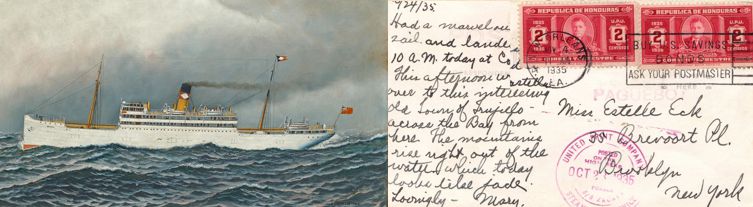 7/24/35
Had a marvelous
sail and landed
10 A.M. today at
This afternoon
over to this interesting
old town of Trujillo -
across the Bay from
here. The mountains
rise right out of the
water which today
looks like jade.
Lovingly - Mary.
REPUBLICA DE HONDURAS
1935
U.P.U.
2
2
CENTAVOS
REPUBLICA DE HONDURAS
1935
U.P.U.
2
2
CENTAVOS
ORLEANS
1935
LA.
BUY U.S. SAVINGS
ASK YOUR POSTMASTER
PAQUEBOT
Miss Estelle Eck
55 Brevoort Pl.
Brooklyn
New York
UNITED FRUIT COMPANY
POSTED
ON THE
HIGH
OCT 2 1935